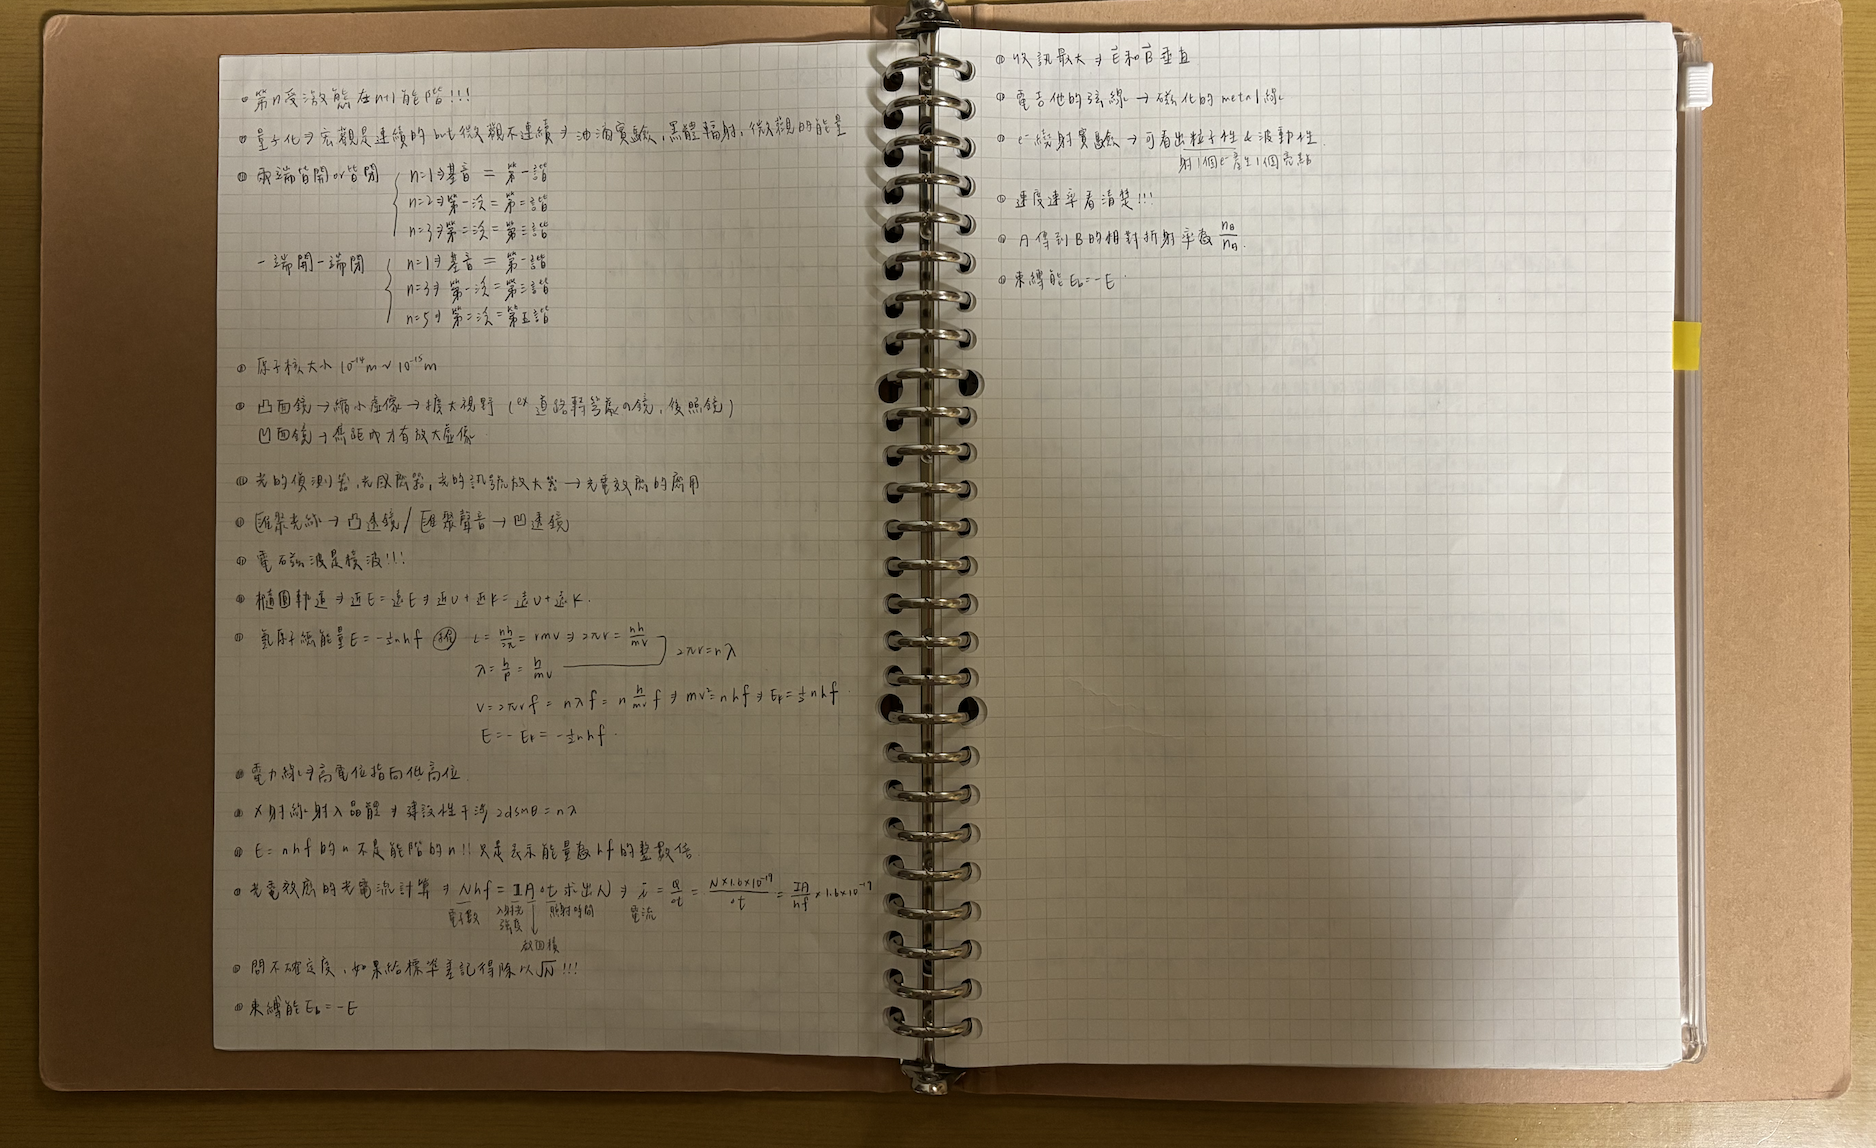 第n受激態在n+1能階!!!
量子化⇒宏觀是連續的but微觀不連續⇒油滴實驗,黑體輻射,微觀的能量
兩端皆開or皆閉 { n=1⇒基音 = 第一諧
n=2⇒第一泛 = 第二諧
n=3⇒第二泛 = 第三諧
一端開一端閉 { n=1⇒基音 = 第一諧
n=3⇒第一泛 = 第三諧
n=5⇒第二泛 = 第五諧
原子核大小 10⁻¹⁴m~10⁻¹⁵m
凸面鏡→縮小虛像→擴大視野 (ex 道路轉彎處の鏡,後照鏡)
凹面鏡→焦距內才有放大虛像
光的偵測器,光感應器,光的訊號放大器→光電效應的應用
匯聚光線→凸透鏡/匯聚聲音→凹透鏡
電磁波是橫波!!!
橢圓軌道⇒近E=遠E⇒近U+近K=遠U+遠K.
氫原子總能量E=-½nhf L=nh/2π=rmv⇒2πr=nh/mv
λ=h/p=h/mv 2πr=nλ
v=2πrf=nλf=n h/mv f⇒mv²=nhf⇒Ek=½nhf.
E=-Ek=-½nhf.
電力線⇒高電位指向低高位
X射線射入晶體⇒建設性干涉2dsinθ=nλ
E=nhf的n不是能階的n!!只是表示能量為hf的整數倍
光電效應的光電流計算⇒Nhf=IA△t求出N⇒i=Q/△t=N×1.6×10⁻¹⁹/△t=IA/hf×1.6×10⁻¹⁹
電子數 入射光強度 照射時間 電流
截面積
問不確定度,如果給標準差記得除以√N!!!
束縛能Eb=-E
收訊最大⇒E⃗和B⃗垂直
電吉他的弦線→磁化的metal線
e⁻繞射實驗→可看出粒子性&波動性
射1個e⁻產生1個亮點
速度速率看清楚!!!
A傳到B的相對折射率為nB/nA.
束縛能Eb=-E.